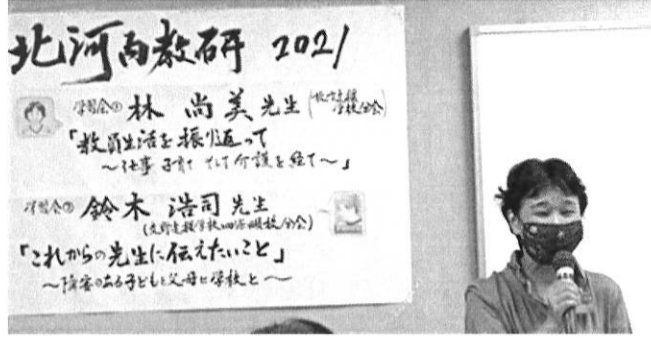 北河内教研 2021
学習会① 林 尚美先生(枚方支援学校分会)
「教員生活を振り返って
～仕事 子育て そして介護を経て～」
学習会② 鈴木 浩司先生
(交野支援学校四條畷校分会)
「これからの先生に伝えたいこと」
～障害のある子どもと父母と学校と～